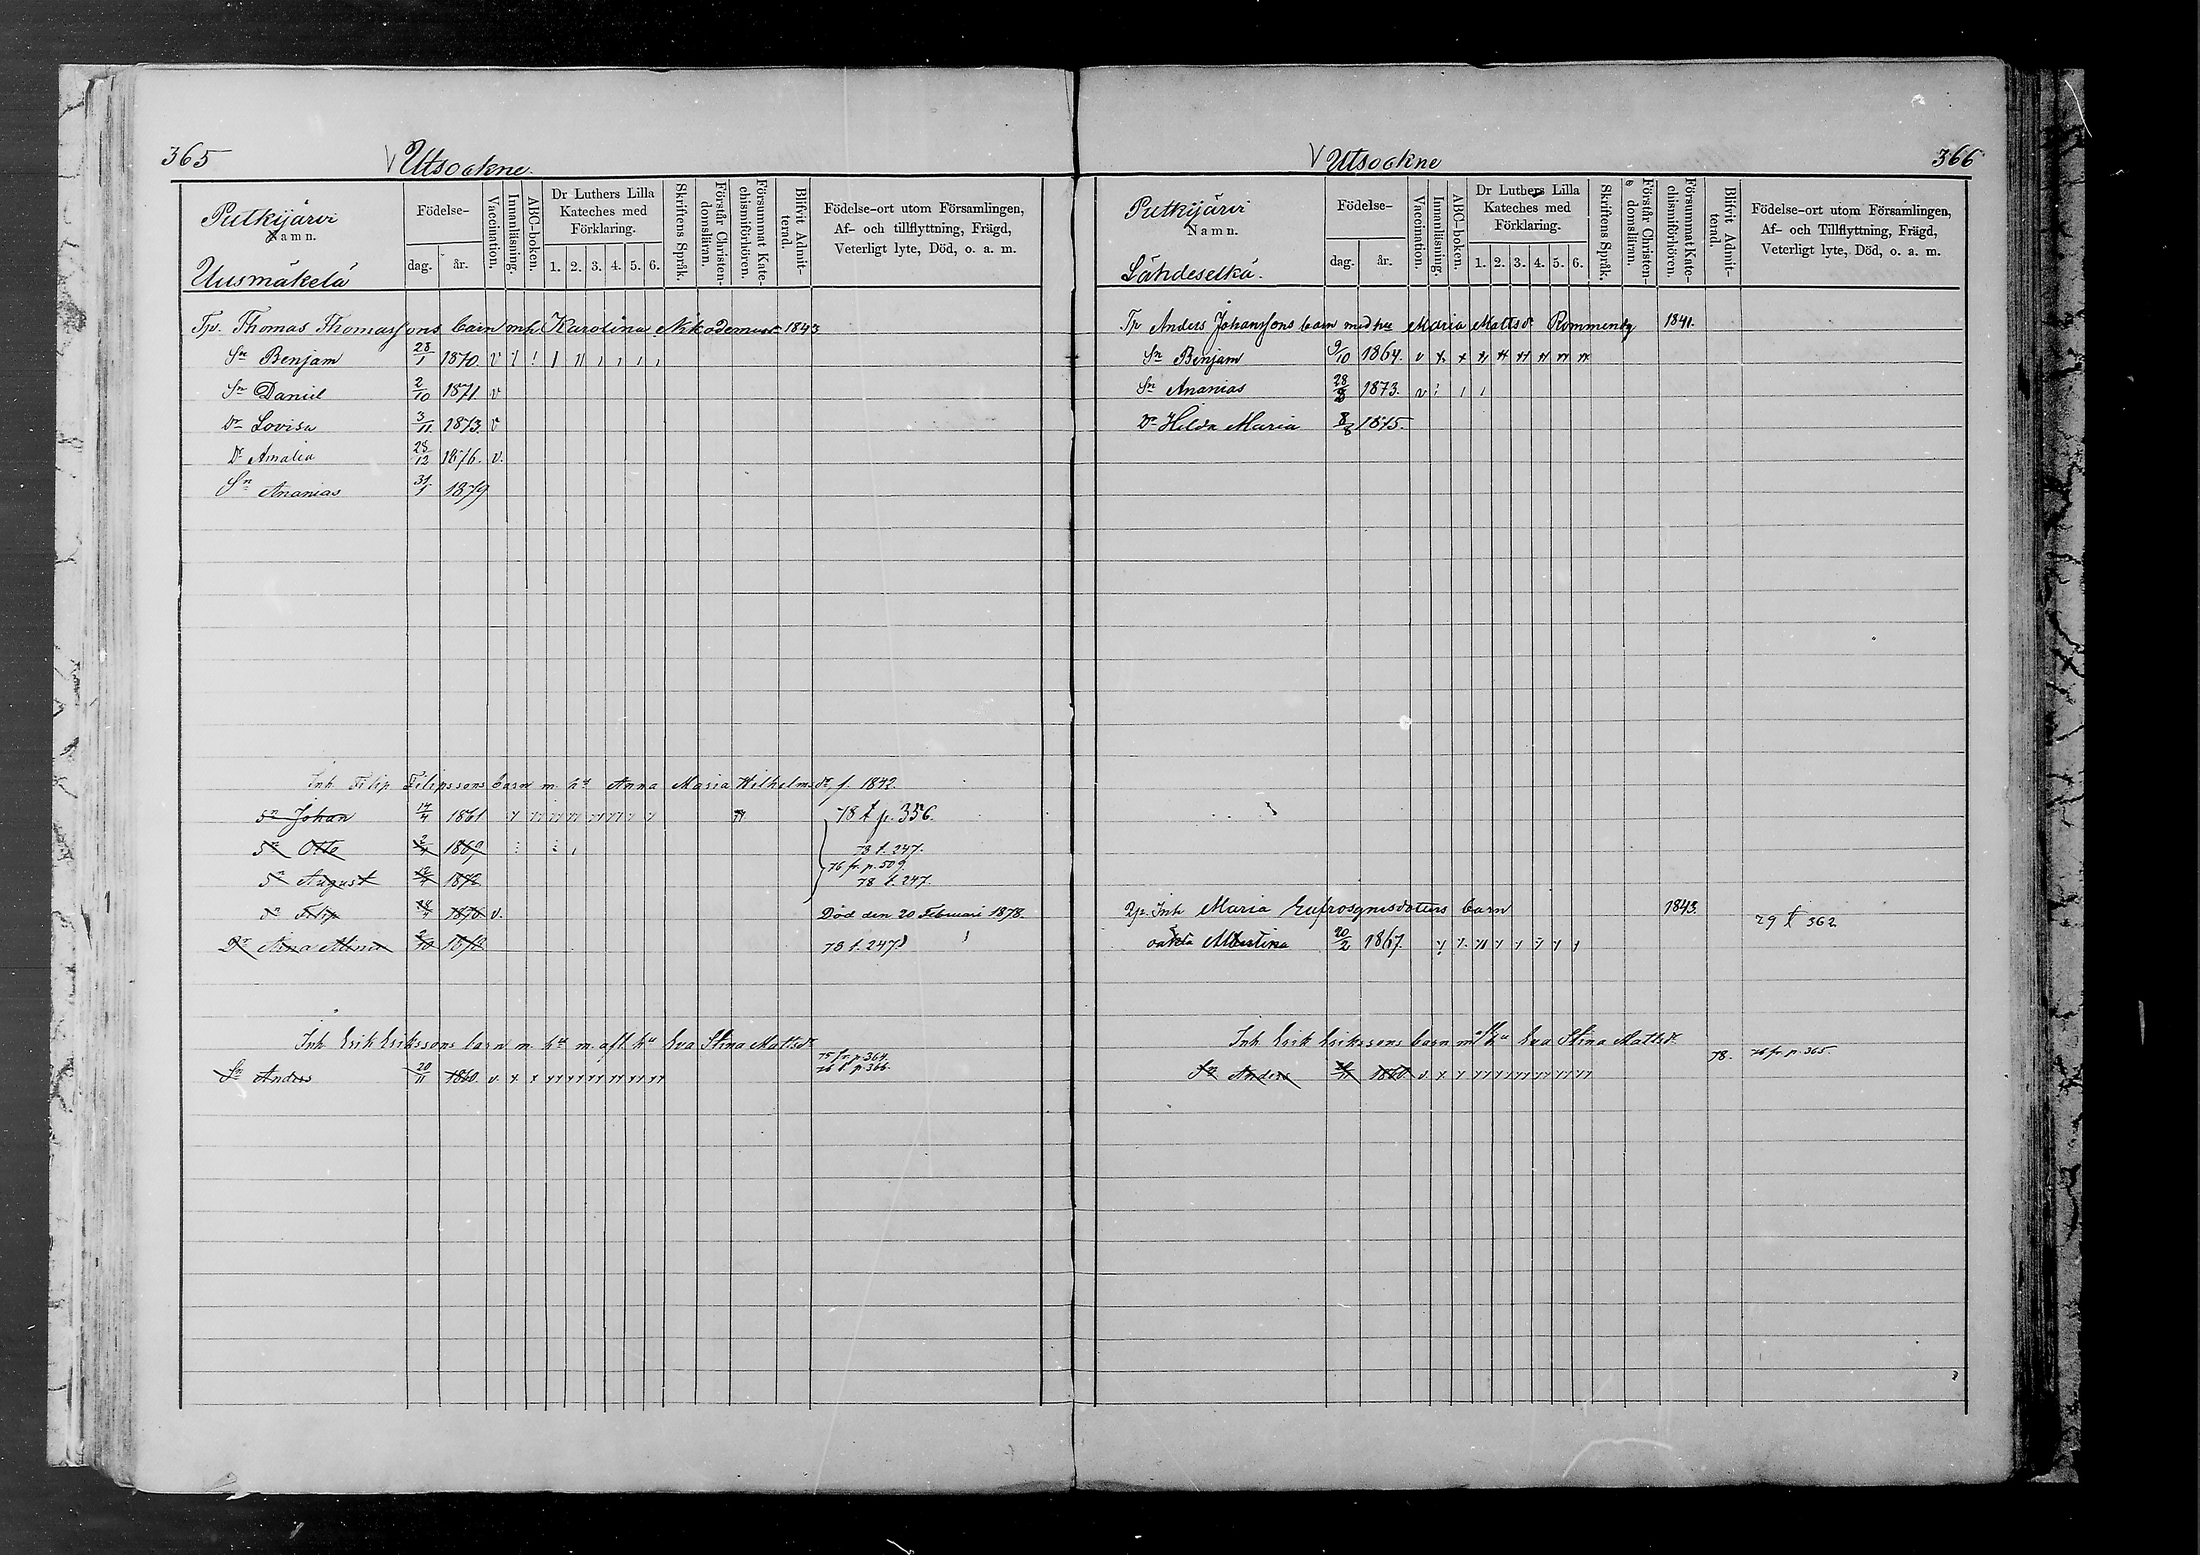 365
V Utsockne.
Putkijärvi
Namn.
Uusmäkelä
Födelse-
dag.
år.
Vaccination.
Innanläsning.
ABC-boken.
Dr Luthers Lilla
Kateches med
Förklaring.
1. 2. 3. 4. 5. 6.
Skriftens Språk.
Förstår Christen-
domslärnn.
Försummat Kate-
chismiförhören.
Blifvit Admit-
terad.
Födelse-ort utom Församlingen,
Af- och tillflyttning, Frägd,
Veterligt lyte, Död, o. a. m.
Tp. Thomas Thomassons barn m h Karolina Nikodemusdr 1843
Sn Benjam 28/1 1870. v
Sn Daniel 2/10 1871 v
Dr Lovisa 3/11 1873. v
Dr Amalia 28/12 1876. v.
Sn Ananias 31/1 1879
Inh. Filip Filipssons barn m. hu Anna Maria Wilhelmsdr f. 1842.
Sn Johan 14/4 1861 78 t p. 356.
Sn Otto 1869 78 t. 247.
76 fr. p. 509.
Sn August 1872 78 t. 247.
Sn Filip 1876 v. Död den 20 Februari 1878.
Dr Anna Alina 1878 78 t. 247
Inh Erik Erikssons barn m. hu m. afl hu Eva Stina Mattsdr
75 fr. p. 364.
Sn Anders 20/11 1860. v. 76 t p. 366.
V Utsockne
366
Putkijärvi
Namn.
Lähdeselkä.
Födelse-
dag.
år.
Vaccination.
Innanläsning.
ABC-boken.
Dr Luthers Lilla
Kateches med
Förklaring.
1. 2. 3. 4. 5. 6.
Skriftens Språk.
Förstår Christen-
domslärnn.
Försummat Kate-
chismiförhören.
Blifvit Admit-
terad.
Födelse-ort utom Församlingen,
Af- och Tillflyttning, Frägd,
Veterligt lyte, Död, o. a. m.
Tp Anders Johanssons barn med hu Maria Mattsdr 1841.
Sn Benjam 9/10 1864. v
Sn Ananias 1873. v
Dr Hilda Maria 8/8 1875.
Inh Maria Eufrosynisdotters barn 1843. 79 t 362
oäkta Albertina 20/2 1867.
Inh. Erik Erikssons barn m afl hu Eva Stina Mattsdr.
78. 76 fr. p. 365.
Sn Anders 1860. v